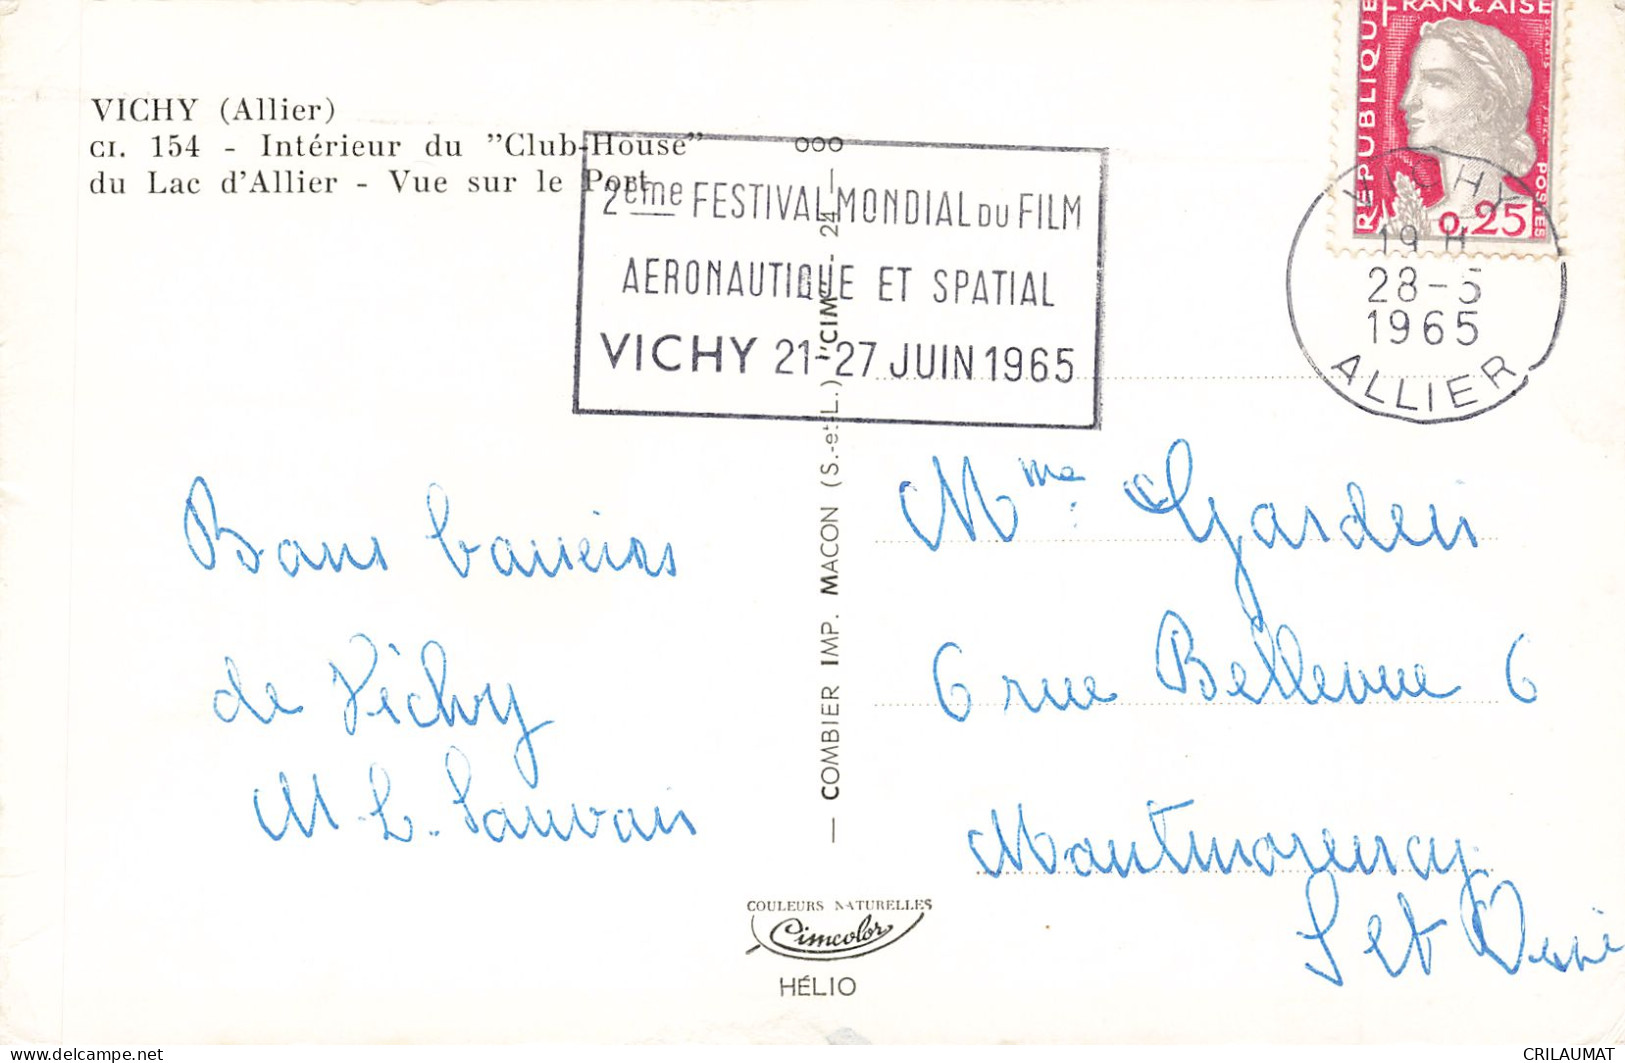 VICHY (Allier)
CI. 154 - Intérieur du "Club-House"
du Lac d'Allier - Vue sur le Port
2eme FESTIVAL MONDIAL DU FILM
AERONAUTIQUE ET SPATIAL
VICHY 21-27 JUIN 1965
REPUBLIQUE FRANÇAISE
POSTES
0,25
VICHY
19 H
28-5
1965
ALLIER
Bons baisers
de Vichy
M. L. Sauvais
— COMBIER IMP. MACON (S.-et-L.) "CIM"
COULEURS NATURELLES
Cimcolor
HÉLIO
Mme
6 rue Bellevue 6
Montmorency
S et Oise
CRILAUMAT